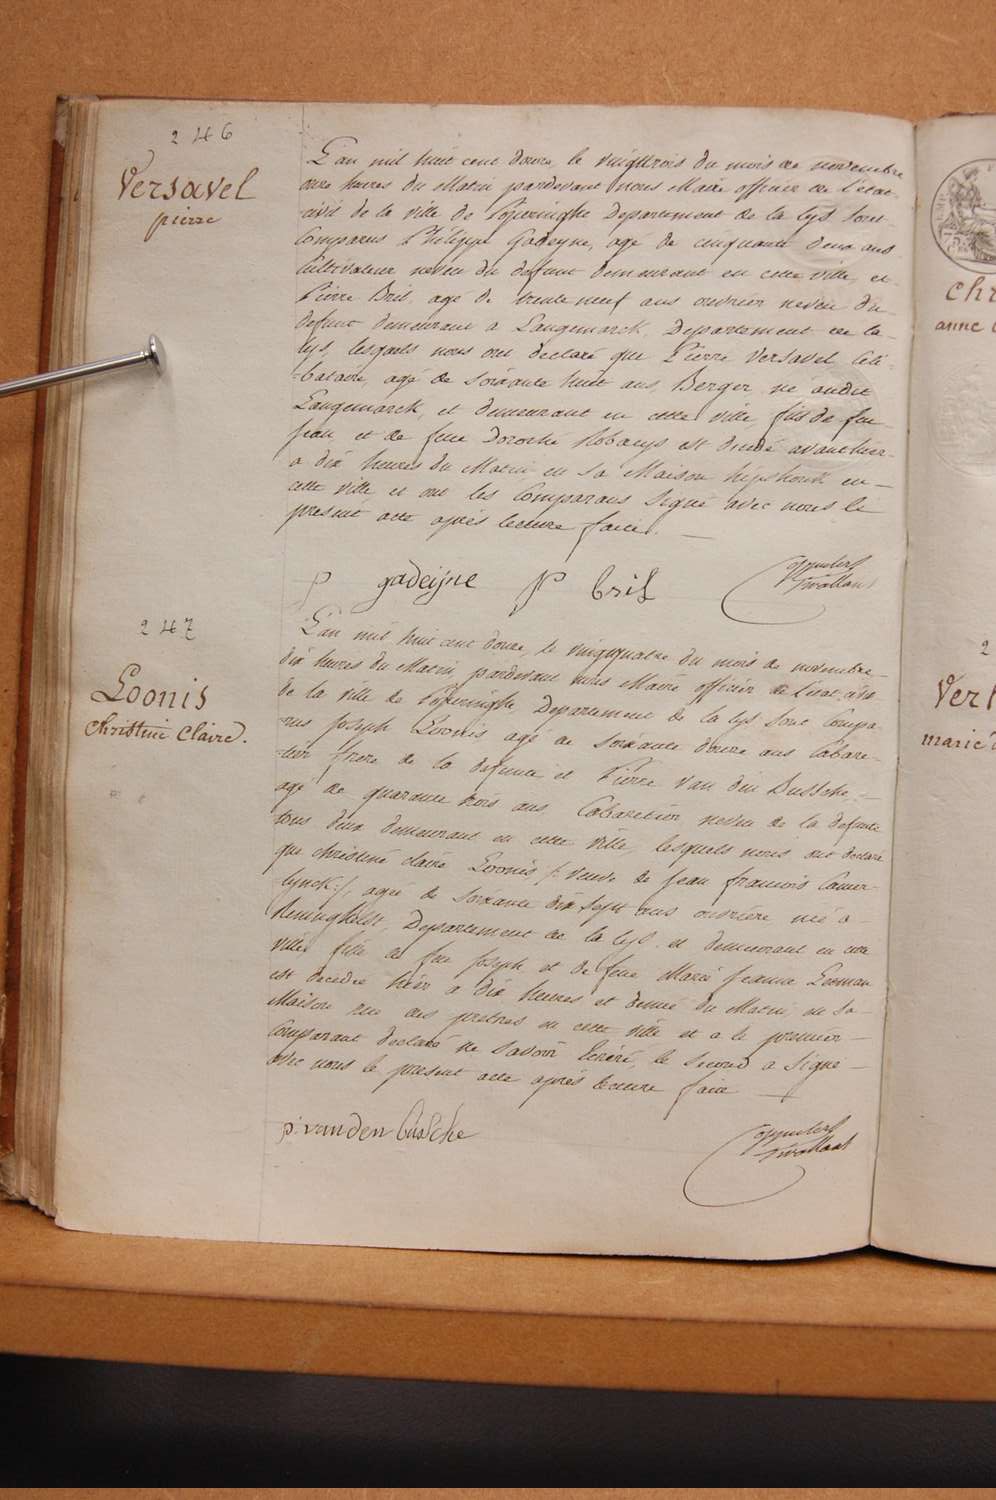 246
Versavel
pierre
L'an mil huit cent douze, le vingttrois du mois de novembre
onze heures du Matin, pardevant nous Maire officier de l'etat
civil de la ville de Poperinghe Departement de la lys sont
Comparus Philippe Gadeyne, agé de cinquante deux ans
Cultivateur neveu du defunt demeurant en cette ville, et
Pierre Bril agé de trente neuf ans ouvrier neveu du
defunt demeurant a Langemarck, Departement de la
lys, lesquels nous ont declaré que Pierre Versavel Céli-
=bataire, agé de soixante huit ans, Berger, né audit
Langemarck, et demeurant en cette ville, fils de feu
Jean et de feue Dorothé est decedé avanthier
a dix heures du Matin en sa Maison en
cette ville, et ont les Comparans signé avec nous le
present acte après lecture faite.
p gadeijne P bril
247
Loonis
Christine Claire.
L'an mil huit cent douze, le vingtquatre du mois de novembre
dix heures du Matin, pardevant nous Maire officier de l'etat civil
de la ville de Poperinghe, Departement de la lys sont Compa-
=rus Joseph Loonis agé de soixante douze ans Cabare-
=tier frere de la defunte et Pierre Van den Bussche,
agé de quarante trois ans, Cabaretier neveu de la defunte
tous deux demeurant en cette ville, lesquels nous ont declaré
que christine claire Loonis /: veuve de Jean françois Camer-
=lynck :/, agée de soixante dix sept ans ouvrière née a
Reninghelst, Departement de la lys et demeurant en cette
ville, fille de feu Joseph et de feue Marie Jeanne
est decedée hier a dix heures et demie du Matin, en sa
Maison rue des pretres en cette ville et a le premier
Comparant declaré ne savoir écrire, le second a signé
avec nous le present acte après lecture faite
p: vanden bussche
chr
anne
2
Vert
marie